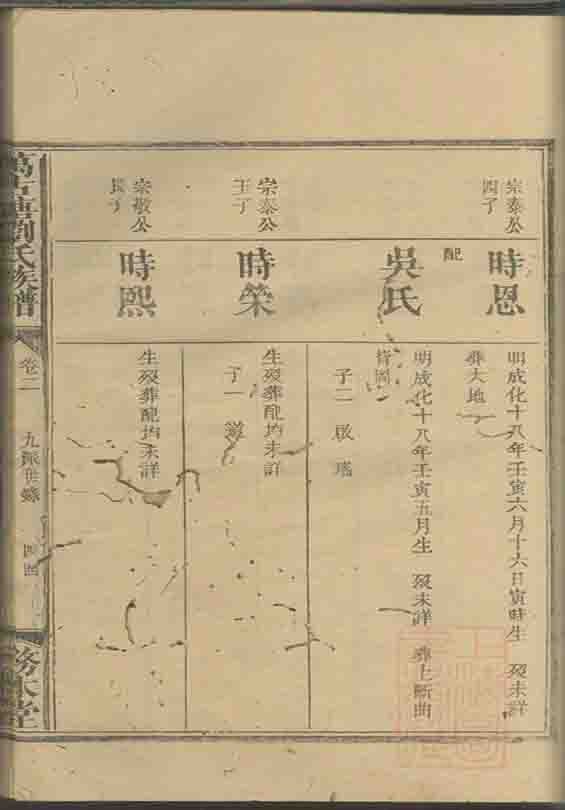 宗泰公
四子
時恩
明成化十八年壬寅六月十六日寅時生 歿未詳
葬大地
配
吳氏
明成化十八年壬寅五月生 歿未詳 葬上斷曲
皆同
子二 啟 瑤
宗泰公
五子
時榮
生歿葬配均未詳
子一
宗敬公
長子
時熙
生歿葬配均未詳
萬古塘劉氏族譜
卷二
九派世錄
四四
務本堂